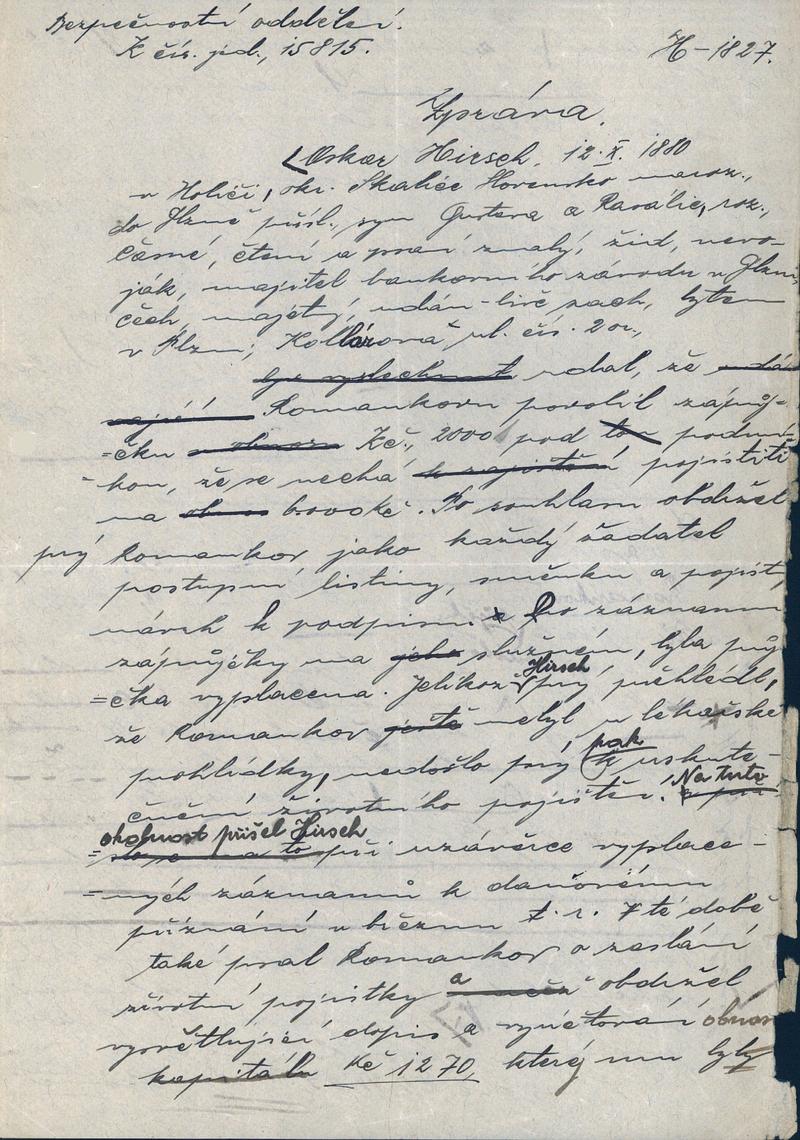 Bezpečnostní oddělení.
K čís. jed., 15815.
H-1827.
Zpráva.
Oskar Hirsch, 12.X. 1880
v Holiči, okr. Skalice Slovensko naroz.,
do Plzně přísl., syn Gustava a Rosalie, roz.,
čtení a psaní znalý, žid, nevo-
ják, majitel bankovního závodu v Plzni,
majetný, udán-livě zach, bytem
v Plzni, Kollárova ul. čís. 20.,
byv vyslechnut udal, že
Romankovu povolil zápůj-
=čku v obnosu Kč., 2000 pod tou podmín-
=kou, že se nechá k zajištění pojistiti
na obnos Kč. Po souhlasu obdržel
prý Romankov jako každý žadatel
postupní listiny, směnku a pojist.
návrh k podpisu a Po záznamu
zápůjčky na jeho služném, byla půj
=čka vyplacena. Jelikož Hirsch prý přehlédl,
že Romankov ještě nebyl u lékařské
prohlídky, nedošlo prý pak k uskute-
čnění životního pojištění. Na tuto
okolnost přišel Hirsch
při uzávěrce vyplace-
=ných záznamů k daňovému
přiznání v březnu t. r. V té době
také psal Romankov o zaslání
životní pojistky a obdržel
vysvětlující dopis a vyúčtování obnos
kapitálu Kč 1270, který mu byly